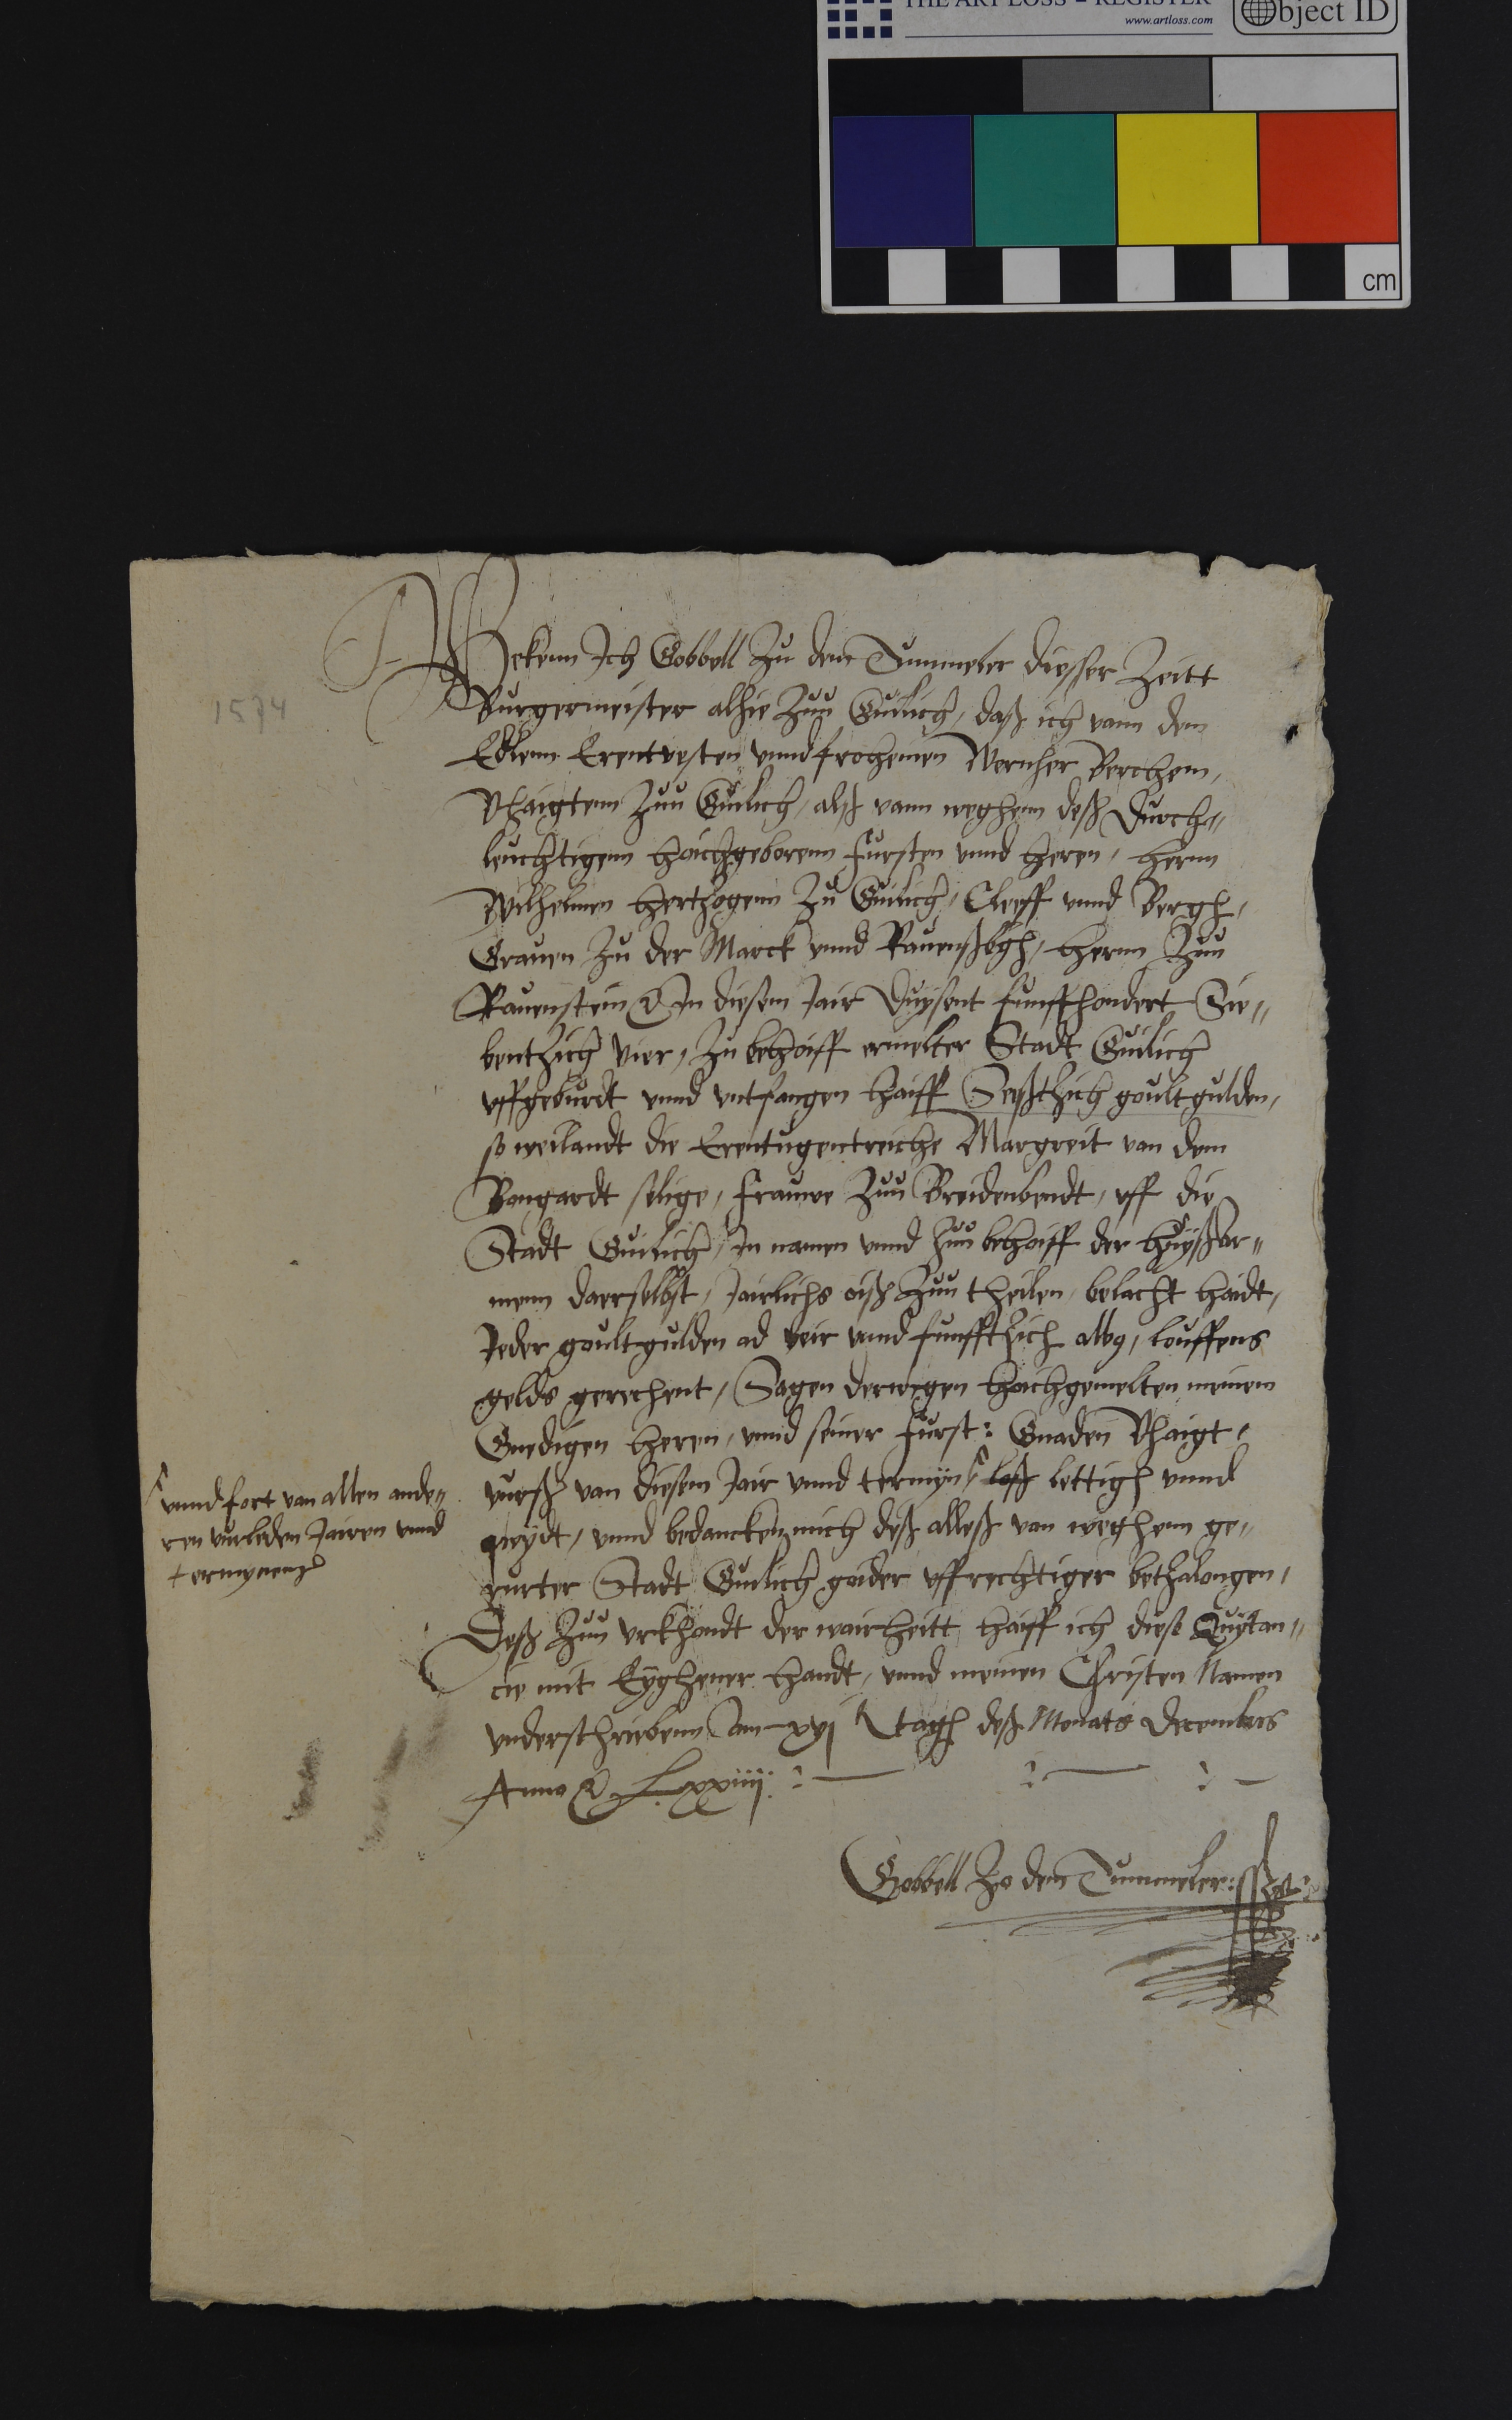 THE ART LOSS - REGISTER
www.artloss.com
Object ID
cm
1574
Bekenn Ich Gobbell Zu dem Tummeler diesser Zeitt
Burgermeister alhie Zuu Guilich, daß ich vann dem
Edlenn Erentvesten vnnd fromhemen Wernher Berchem,
Vhaigtenn Zuu Guilich, alß vann weghenn deß Durch„
leuchtigenn hoichgeborenn fursten vnnd heren, hernn
Wilhelmen hertzogenn Zu Guilich, Cleeff vnnd Bergh,
Grauen Zu der Marck vnnd Rauenßbgh, hernn Zuu
Rauenstein & In diesem Jair Duysent funffhondert Sie„
bentzich Vier, Zu behoiff ermelter Stadt Guilich
vffgeburdt vnnd vntfangen haiff Seißtzich goultgulden,
so weilandt die Erentugentreiche Margreit van dem
Bongardt selige, frauwe Zuu Breidenbendt, vff die
Stadt Guilich, In namen vnnd Zuu behoiff der huyßar„
menn daerselbst, Jairlichs oiß Zuu theilen, belacht haidt,
Jeder goultgulden ad veir vnnd funfftzich albg, louffens
geldts gerechent, Sagen derwegen hoichgemelten meinem
Gnedigen heren, vnnd seiner furst: Gnaden Vhaigt,
vurß van diesem Jair vnnd termyn loß lettigh vnnd
vnnd fort van allen ande„
ren vurleden Jairen vnnd
termynenn
qwydt, vnnd bedancken mich deß alleß van weghenn ge„
rurter Stadt Guilich goider vffrechtiger bethalongen,
Deß Zuu vrkhondt der wairheitt, haiff ich diese Quytan„
cie mit Eyghener handt, vnnd meinen Christen Namen
vnderschriebenn am xvj tagh deß Monats Decembris
Anno & Lxxiiij :
Gobbell Zo dem Tummeler: